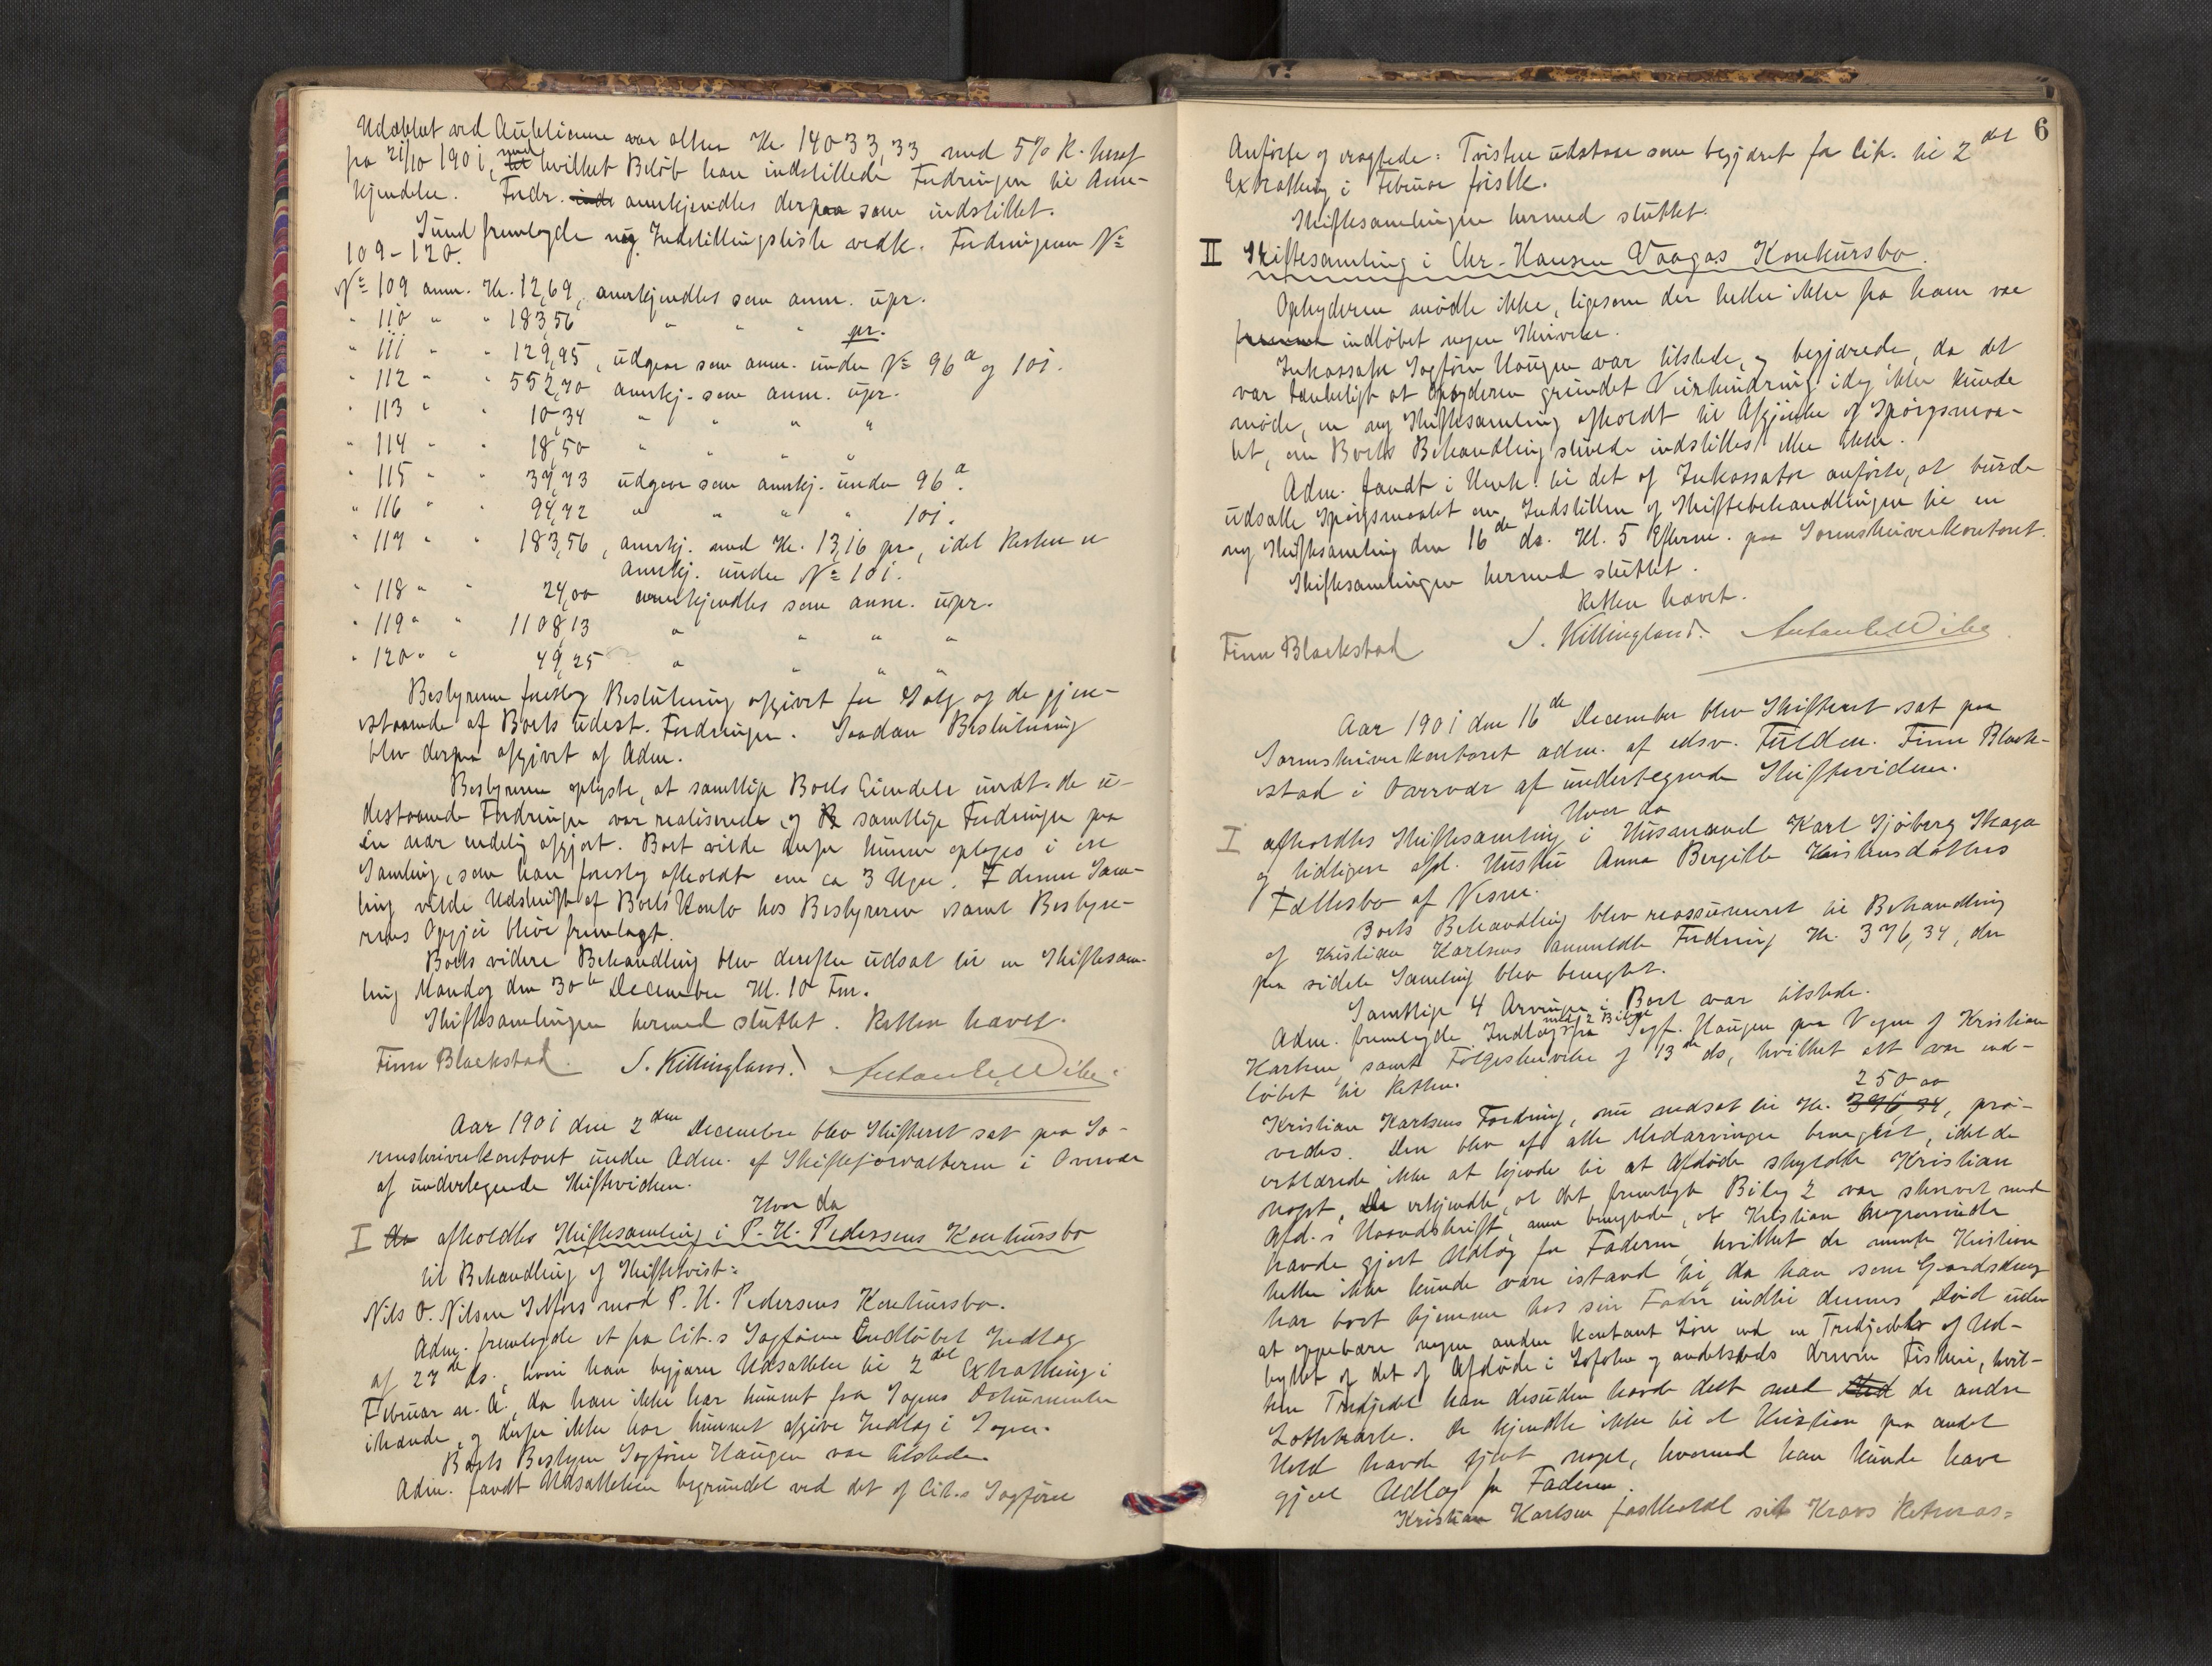 Udækket ved Auktionen var altsaa Kr. 14033,33 med 5% R. heraf
fra 21/10 1901, med hvilket Beløb han indstillede Fordringen til Aner-
kjendelse. Fordr. anerkjendtes derpaa som indstillet.
Sund fremlagde ny Indstillingsliste vedk. Fordringerne No
109-120.
No 109 anm. Kr. 12,69, anerkjendtes som anm. upr.
" 110 " " 183,56 " " " pr.
" 111 " " 129,95, udgaar som anm. under No 96a og 101.
" 112 " " 552,70 anerkj. som anm. upr.
" 113 " " 10,34 " " " "
" 114 " " 18,50 " " " "
" 115 " " 37,73 udgaar som anerkj. under 96a.
" 116 " " 94,72 " " " " 101.
" 117 " " 183,56, anerkj. med Kr. 13,16 pr., idet Resten er
anerkj. under No 101.
" 118 " " 24,00 anerkjendtes som anm. upr.
" 119 " " 1108,13 " " " "
" 120 " " 49,25 " " " "
Bestyreren foreslog Beslutning afgivet for Salg af de gjen-
staaende af Boets udest. Fordringer. Saadan Beslutning
blev derpaa afgivet af Adm.
Bestyreren oplyste, at samtlige Boets Eiendele undt. de u-
destaaende Fordringer var realiserede og samtlige Fordringer paa
én nær endelig afgjort. Boet vilde derfor kunne optages i en
Samling, som han foreslog afholdt om ca 3 Uger. I denne Sam-
ling vilde Udskrift af Boets Konto hos Bestyreren samt Bestyre-
rens Opgjør blive fremlagt.
Boets videre Behandling blev derefter udsat til en Skiftesam-
ling Mandag den 30te December Kl. 10 Fm.
Skiftesamlingen hermed sluttet. Retten hævet.
Finn Blackstad. S. Killingland. Anton L. Wibe.
Aar 1901 den 2den December blev Skifteret sat paa So-
renskriverkontoret under Adm. af Skifteforvalteren i Overvær
af undertegnede Skiftevidner.
Hvor da
I da afholdtes Skiftesamling i P. H. Pedersens Konkursbo
til Behandling af Skiftetvist:
Nils O. Nilsen Selfors mod P. H. Pedersens Konkursbo.
Adm. fremlagde et fra Cit.s Sagfører indløbet Indlæg
af 27de ds., hvori han begjærer Udsættelse til 2det Extrathing i
Februar n. A., da han ikke har kunnet faa Sagens Dokumenter
ihænde, og derfor ikke har kunnet afgive Indlæg i Sagen.
Boets Bestyrer Sagfører Haugen var tilstede.
Adm. fandt Udsættelsen begrundet ved det af Cit.s Sagfører
6
Anførte og eragtede: Tvisten udstaar som begjæret fra Cit. til 2det
Extrathing i Februar førstk.
Skiftesamlingen hermed sluttet.
II Skiftesamling i Chr. Hansen Vaagas Konkursbo.
Opbyderen mødte ikke, ligesom der heller ikke fra ham var
indløbet nogen Skrivelse.
Inkassator Sagfører Haugen var tilstede, og begjærede, da det
var tænkeligt at Opbyderen grundet Veirhindring idag ikke kunde
møde, en ny Skiftesamling afholdt til Afgjørelse af Spørgsmaa-
let, om Boets Behandling skulde indstilles eller ikke.
Adm. fandt i Henh. til det af Inkassator anførte, at burde
udsætte Spørgsmaalet om Indstillen af Skiftebehandlingen til en
ny Skiftesamling den 16de ds. Kl. 5 Efterm. paa Sorenskriverkontoret.
Skiftesamlingen hermed sluttet.
Retten hævet.
Finn Blackstad S. Killingland. Anton L. Wibe.
Aar 1901 den 16de December blev Skifteret sat paa
Sorenskriverkontoret adm. af edsv. Fuldm. Finn Black-
stad i Overvær af undertegnede Skiftevidner.
Hvor da
I afholdtes Skiftesamling i Husmand Karl Sjøberg Skaga
og tidligere afd. Hustru Anna Bergitte Kristensdatters
Fællesbo af Nesne.
Boets Behandling blev reassumeret til Behandling
af Kristian Karlsens anmeldte Fordring Kr. 376,34, der
paa sidste Samling blev benægtet.
Samtlige 4 Arvinger i Boet var tilstede.
Adm. fremlagde Indlæg med 2 Bilage fra Sagf. Haugen paa Vegne af Kristian
Karlsen samt Følgeskrivelse af 13de ds, hvilket alt var ind-
løbet til Retten.
250,00
Kristian Karlsens Fordring, nu nedsat til Kr. 376,34, prø-
vedes. Den blev af alle Medarvinger benægtet, idet de
erklærede ikke at kjende til at Afdøde skyldte Kristian
noget. De erkjendte, at det fremlagte Bilag 2 var skrevet med
Afd.s Haandskrift, men benægtede, at Kristian nogensinde
havde gjort Udlæg for Faderen, hvilket de mente Kristian
heller ikke kunde være istand til, da han som Gaardsdreng
har boet hjemme hos sin Fader indtil dennes Død uden
at oppebære nogen anden kontant Løn end en Trediedel af Ud-
byttet af det af Afdøde i Lofoten og andetsteds drevne Fiskeri, hvil-
ken Trediedel han desuden havde delt med de andre
Lottekarle. De kjendte ikke til at Kristian paa andet
Hold havde tjent noget, hvormed han kunde have
gjort Udlæg for Faderen.
Kristian Karlsen fastholdt sit Kravs Retmæs=